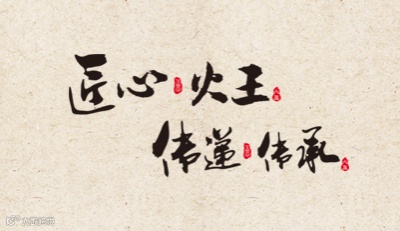 匠心 火王
传递 传承